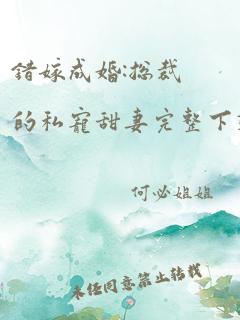 错嫁成婚:总裁
的私寵甜妻完整下
何必姐姐
未经同意禁止转载